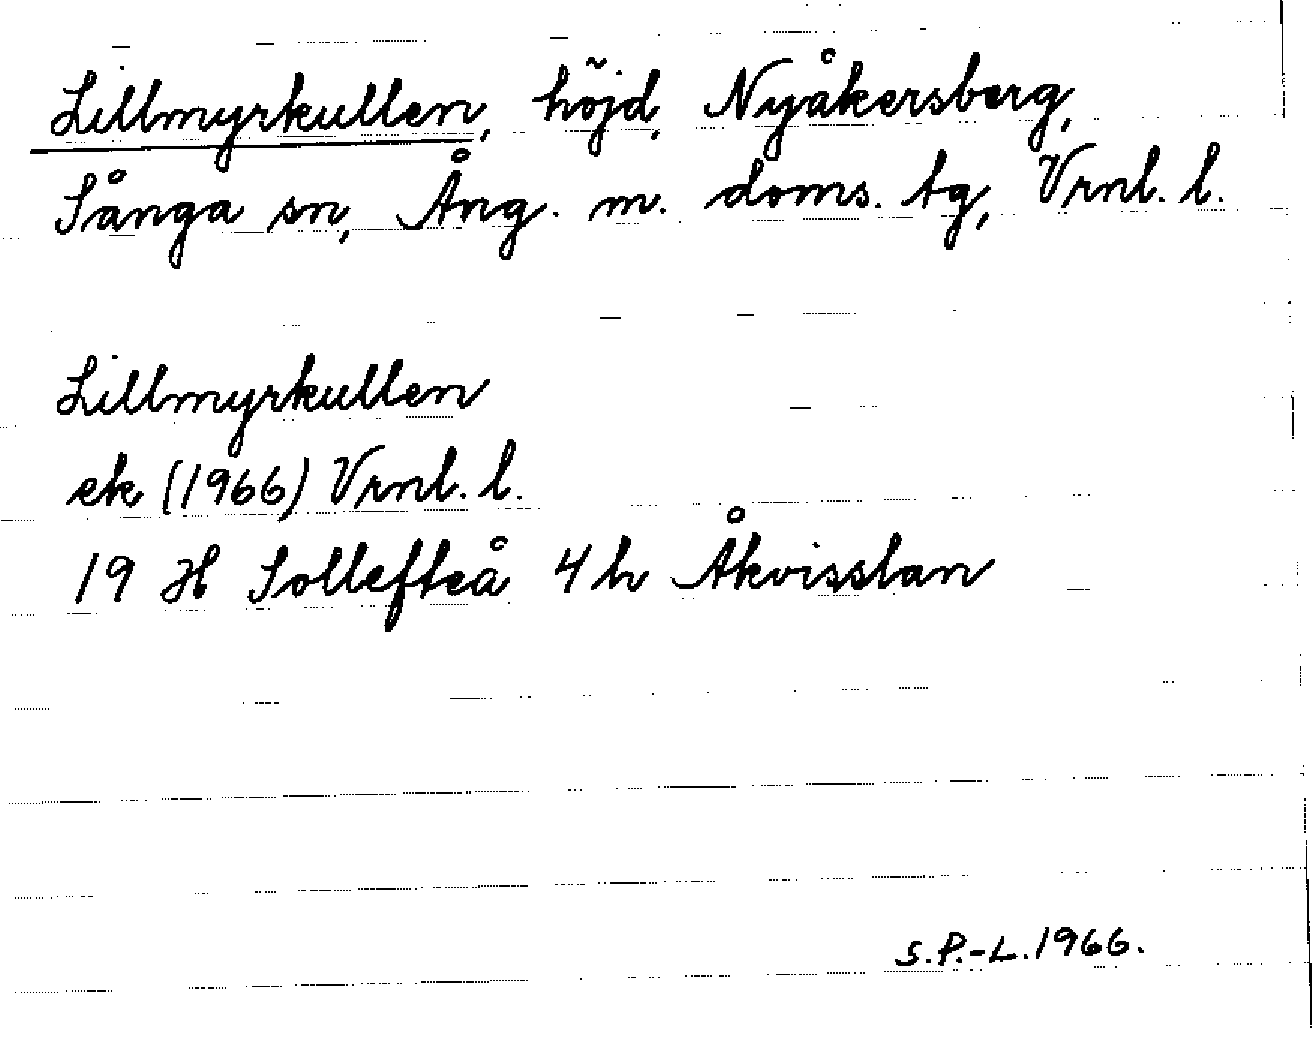 Lillmyrkullen, höjd, Nyåkersberg,
Sånga sn, Ång. m. doms. tg, Vrnl. l.
Lillmyrkullen
ek (1966) Vrnl. l.
19 H Sollefteå 4h Åkvisslan
S.P.-L. 1966.